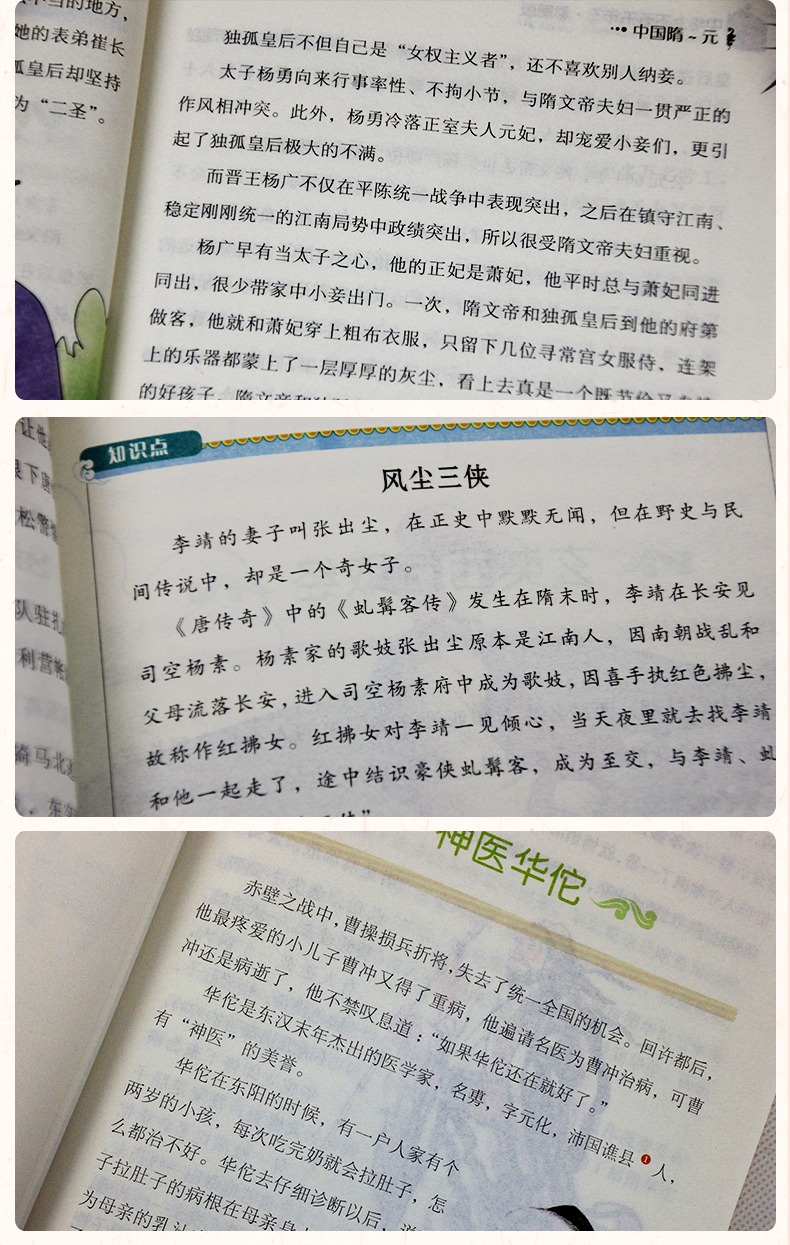 不当的地方，
她的表弟崔长
孤皇后却坚持
为“二圣”。
中国隋～元
独孤皇后不但自己是“女权主义者”，还不喜欢别人纳妾。
太子杨勇向来行事率性、不拘小节，与隋文帝夫妇一贯严正的
作风相冲突。此外，杨勇冷落正室夫人元妃，却宠爱小妾们，更引
起了独孤皇后极大的不满。
而晋王杨广不仅在平陈统一战争中表现突出，之后在镇守江南、
稳定刚刚统一的江南局势中政绩突出，所以很受隋文帝夫妇重视。
杨广早有当太子之心，他的正妃是萧妃，他平时总与萧妃同进
同出，很少带家中小妾出门。一次，隋文帝和独孤皇后到他的府第
做客，他就和萧妃穿上粗布衣服，只留下几位寻常宫女服侍，连架
上的乐器都蒙上了一层厚厚的灰尘，看上去真是一个既节俭又
的好孩子。隋文帝和独
让他
下唐
松警
队驻扎
利营帐
骑马北
知识点
风尘三侠
李靖的妻子叫张出尘，在正史中默默无闻，但在野史与民
间传说中，却是一个奇女子。
《唐传奇》中的《虬髯客传》发生在隋末时，李靖在长安见
司空杨素。杨素家的歌妓张出尘原本是江南人，因南朝战乱和
父母流落长安，进入司空杨素府中成为歌妓，因喜手执红色拂尘，
故称作红拂女。红拂女对李靖一见倾心，当天夜里就去找李靖
和他一起走了，途中结识豪侠虬髯客，成为至交，与李靖、虬
神医华佗
赤壁之战中，曹操损兵折将，失去了统一全国的机会。回许都后，
他最疼爱的小儿子曹冲又得了重病，他遍请名医为曹冲治病，可曹
冲还是病逝了，他不禁叹息道：“如果华佗还在就好了。”
华佗是东汉末年杰出的医学家，名旉，字元化，沛国谯县1人，
有“神医”的美誉。
华佗在东阳的时候，有一户人家有个
两岁的小孩，每次吃完奶就会拉肚子，怎
么都治不好。华佗去仔细诊断以后，说
子拉肚子的病根在母亲身
为母亲的乳汁